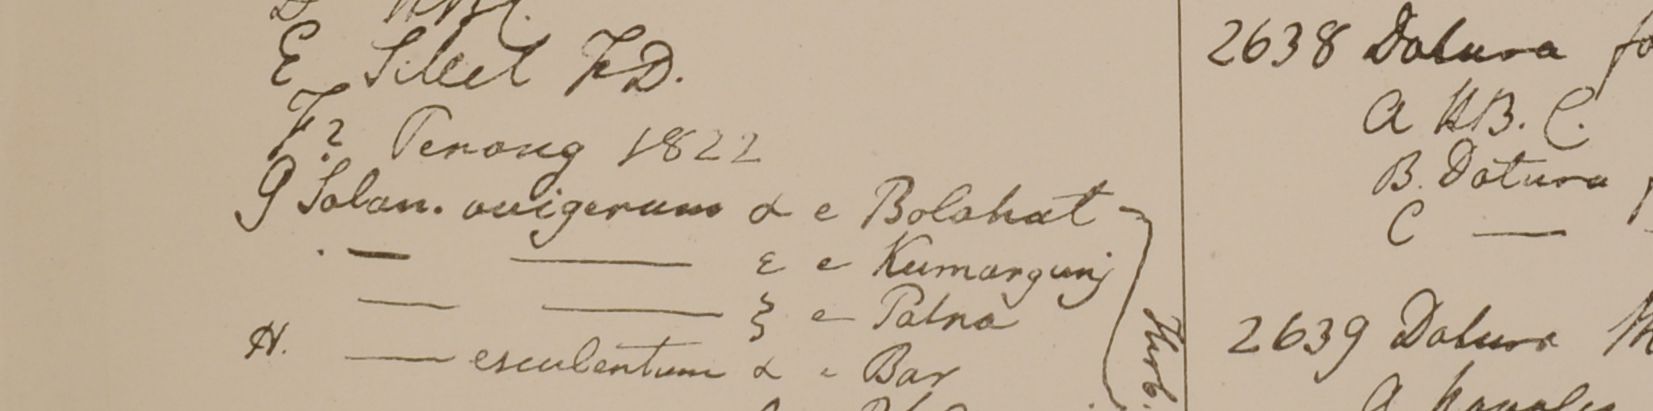 D HBC.
E Sillet F.D.
F? Penang 1822
G Solan. ovigerum α e Bolahat
— — ε e Kumargunj
— — ξ e Patna
H. — esculentum α e Bar
Herb.
2638 Datura
A HB. C.
B. Datura
C —
2639 Datura